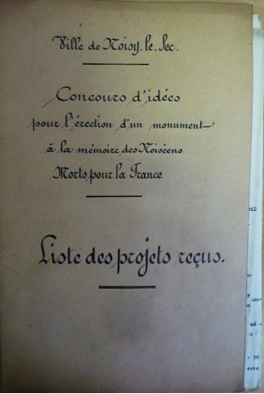 Ville de Noisy-le-Sec.
Concours d'idées
pour l'érection d'un monument
à la mémoire des Noiséens
Morts pour la France
Liste des projets reçus.